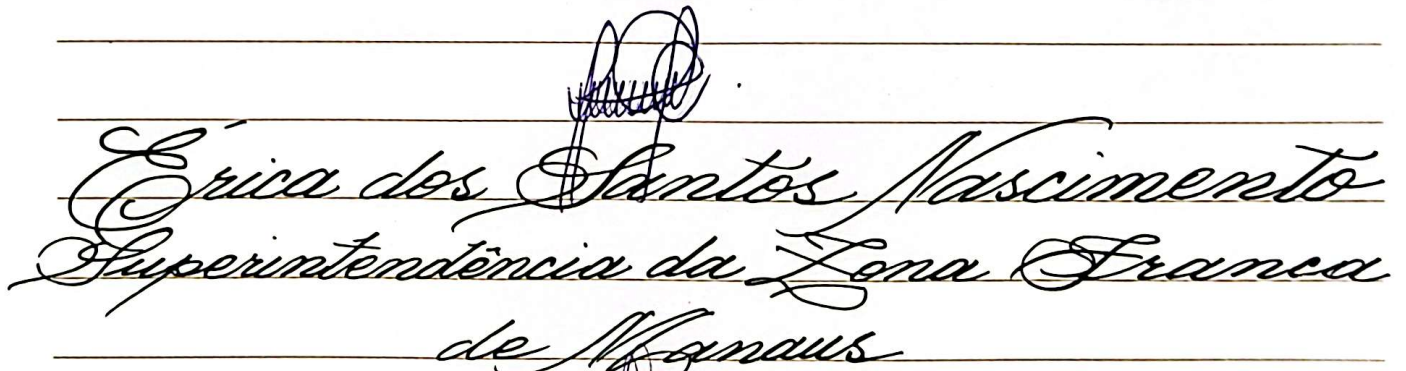 Érica dos Santos Nascimento
Superintendência da Zona Franca
de Manaus